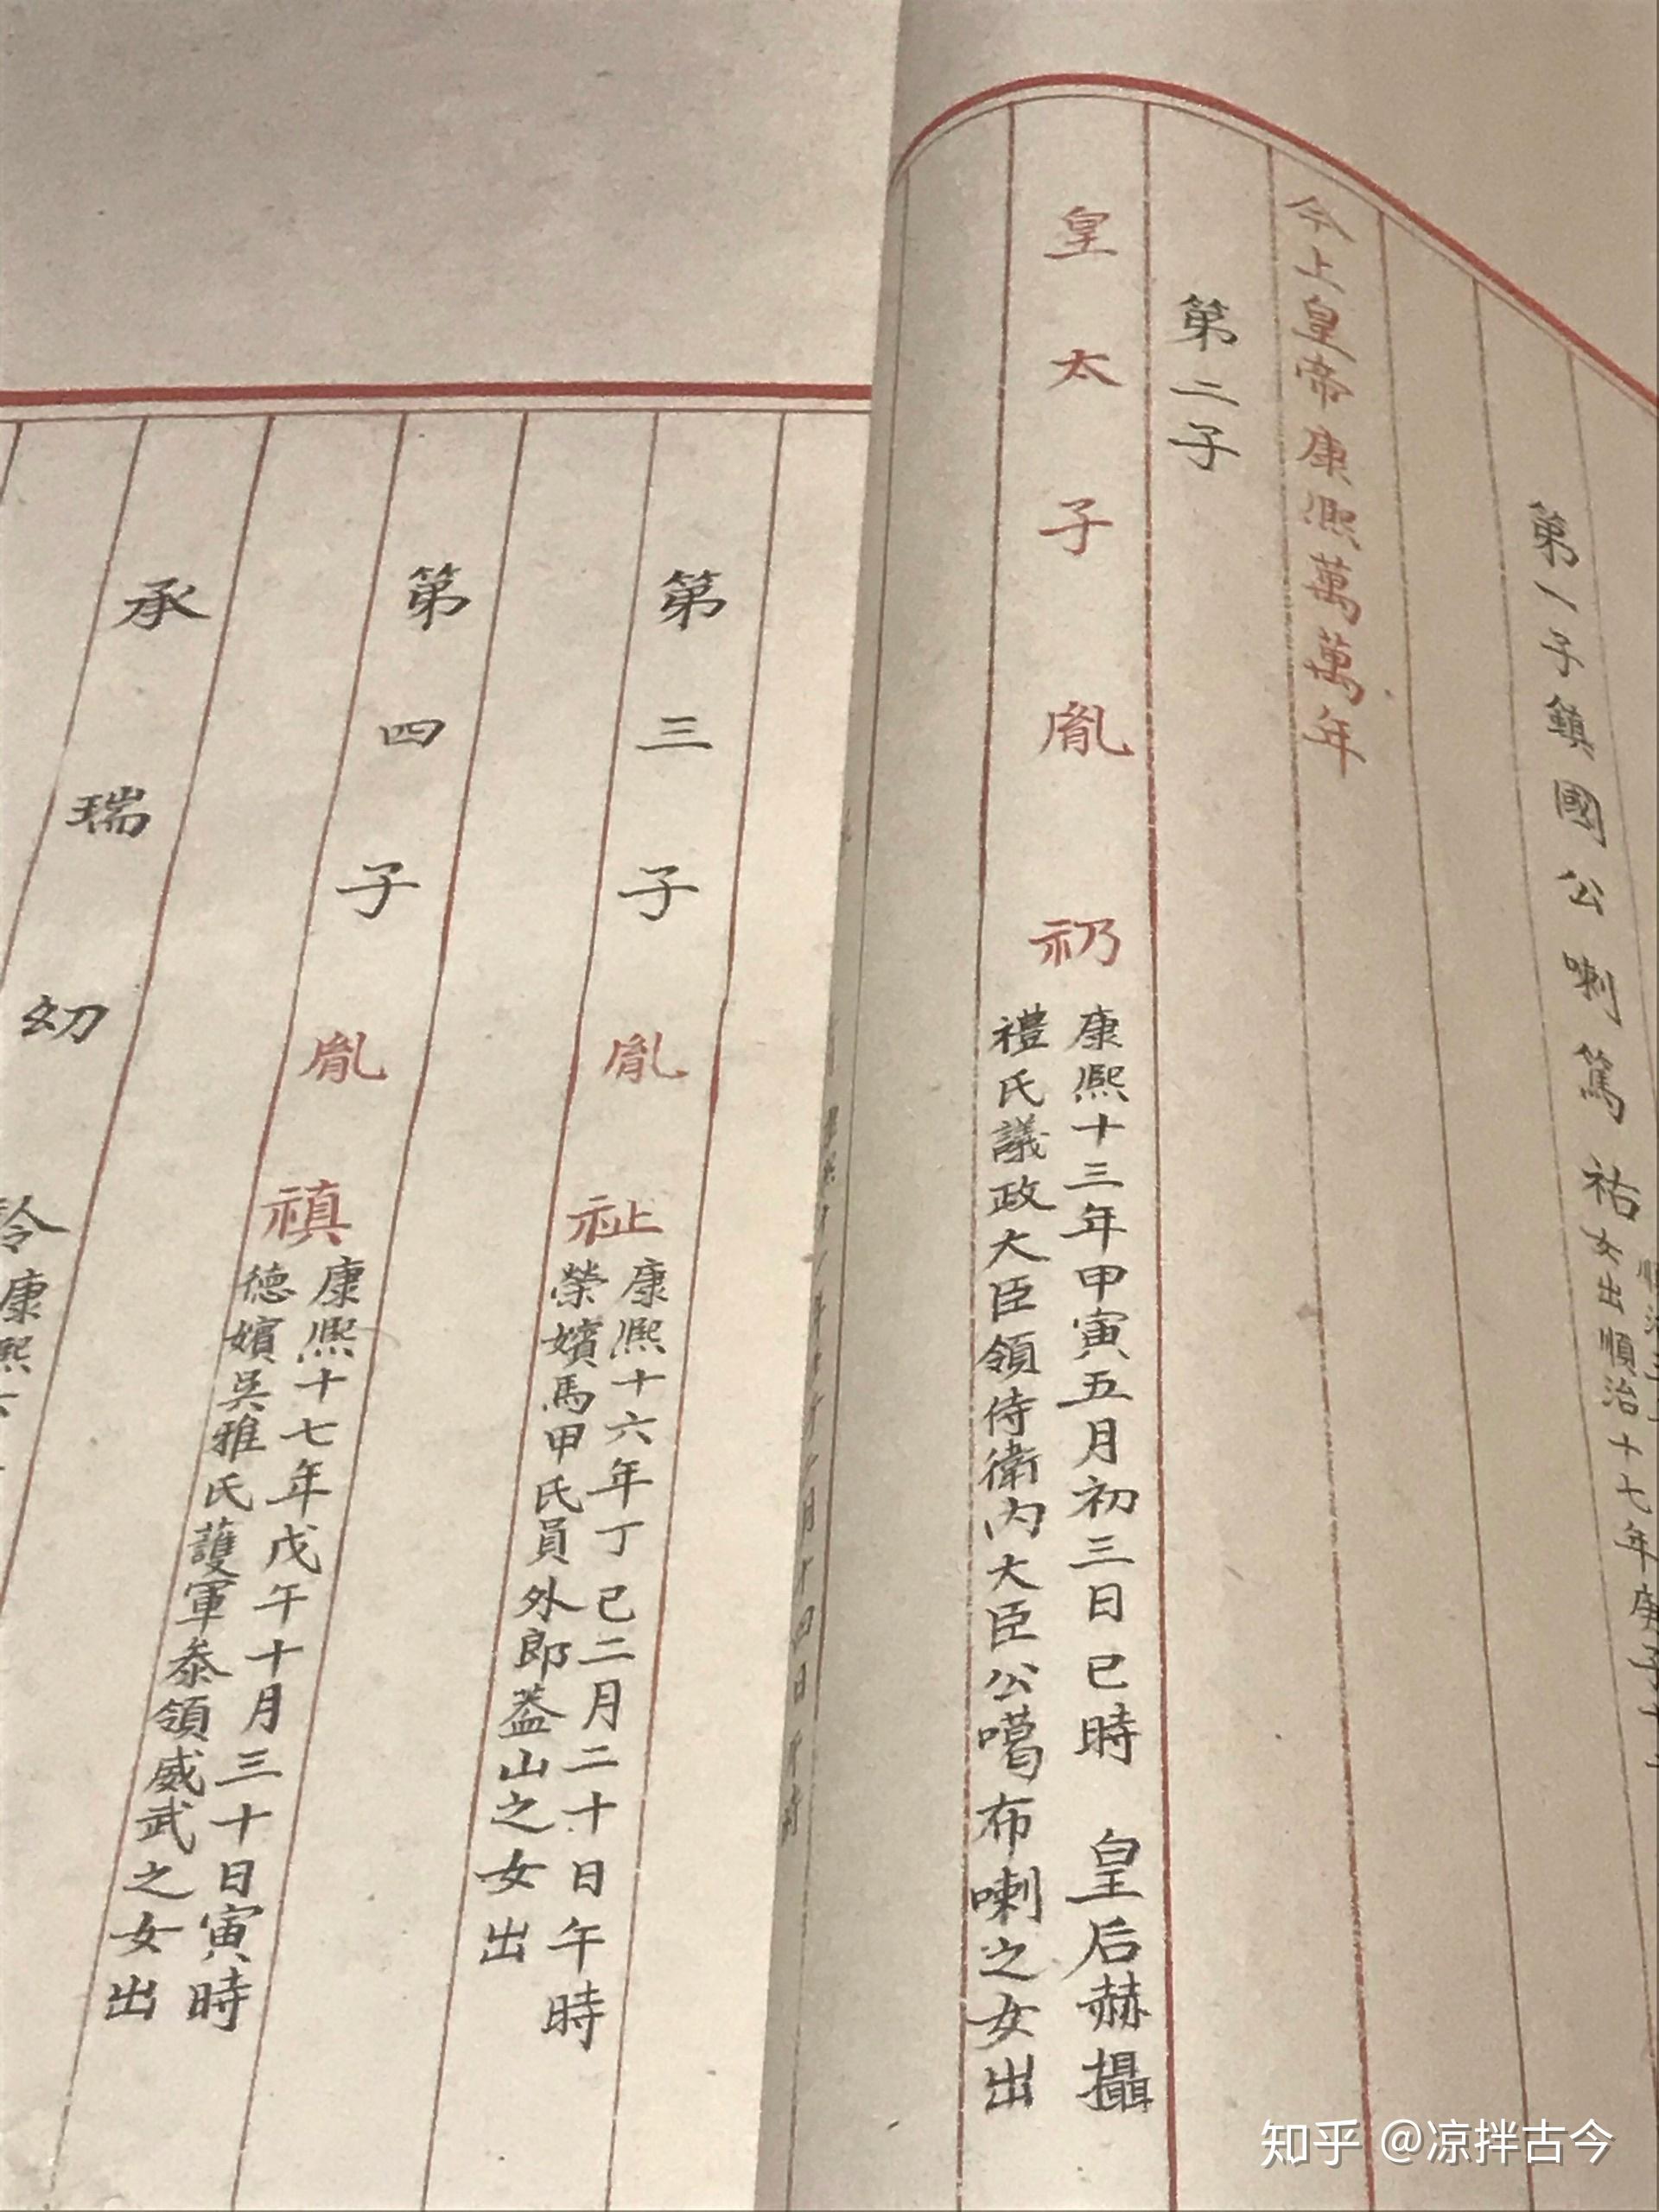 第一子鎮國公喇篤祐
女出順治十七年庚子十
今上皇帝康熙萬萬年
第二子
皇太子胤礽
康熙十三年甲寅五月初三日巳時 皇后赫攝
禮氏議政大臣領侍衛內大臣公噶布喇之女出
第三子胤祉
康熙十六年丁巳二月二十日午時
榮嬪馬甲氏員外郎蓋山之女出
第四子胤禛
康熙十七年戊午十月三十日寅時
德嬪吳雅氏護軍叅領威武之女出
承瑞幼
康熙
知乎 @凉拌古今